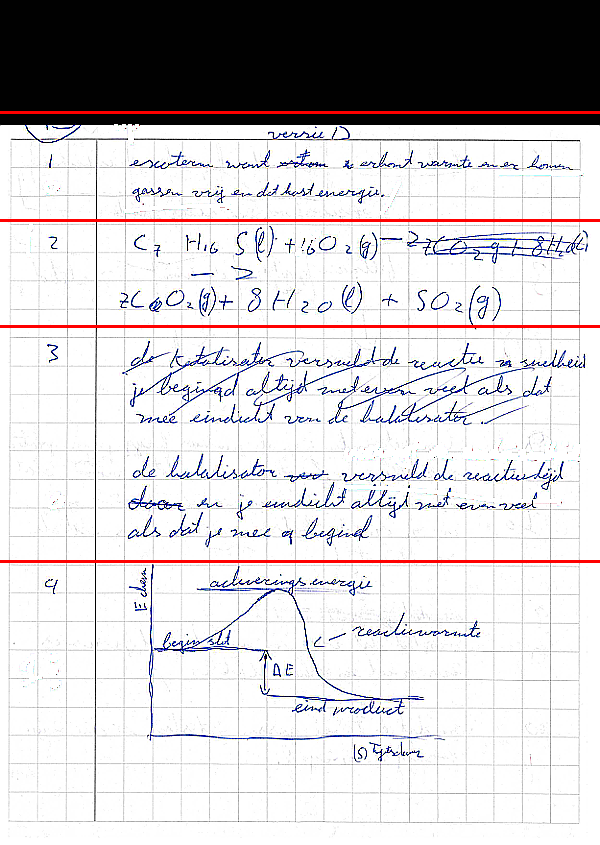 versie D
1 exoterm want er komt warmte en er komen
gassen vrij en dat kost energie.
2 C7 H16 S(l) + 16O2(g) —> 7CO2 g + 8H2O(l)
—>
7CO2(g) + 8 H2O(l) + SO2(g)
3 de katalisator versneld de reactie snelheid
je begind altijd met even veel als dat
mee eindicht van de katalisator.
de katalisator versneld de reactietijd
door en je eindicht altijd met even veel
als dat je mee begind
4 E chem
activerings energie
begin stof
reactiewarmte
ΔE
eind product
(s)